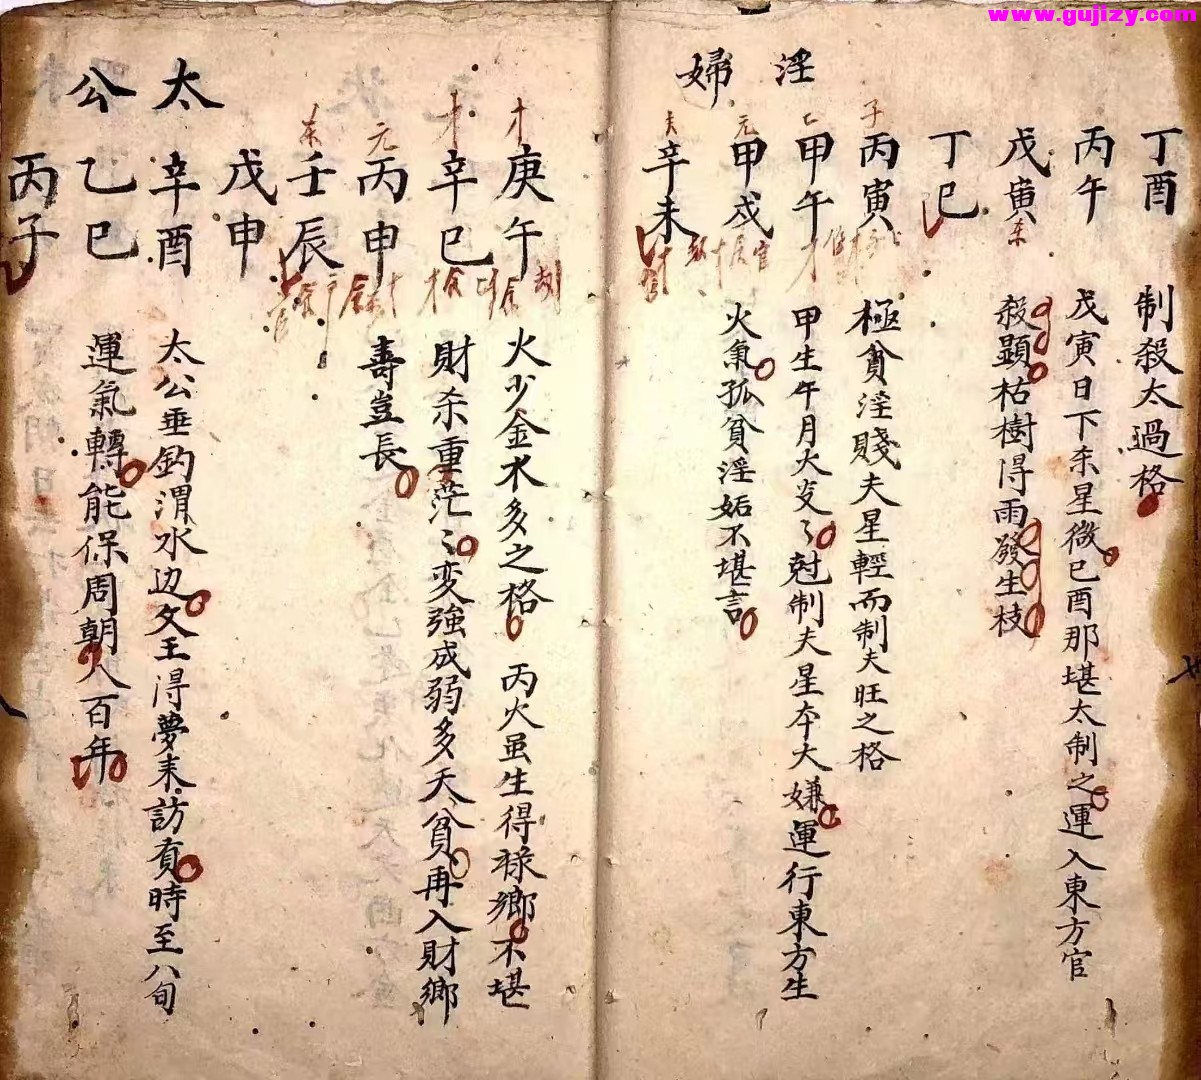 www.gujizy.com
丁酉 制殺太過格
丙午 戊寅日下系星微己酉那堪太制之運入東方官
戊寅 殺顯枯樹得雨發生枝
丁巳
淫婦
丙寅 極貧淫賤夫星輕而制夫旺之格
甲午 甲生午月火炎〻尅制夫星夲大嫌運行東方生
甲戍 火氣孤貧淫妬不堪言
辛未
庚午 火少金水多之格 丙火虽生得祿鄉不堪
辛巳 財杀重茫〻変強成弱多夭貧再入財鄉
丙申 壽豈長
壬辰
太公
戊申
辛酉 太公垂釣渭水边文王得夢来訪賢時至八旬
乙巳 運氣轉能保周朝八百年
丙子